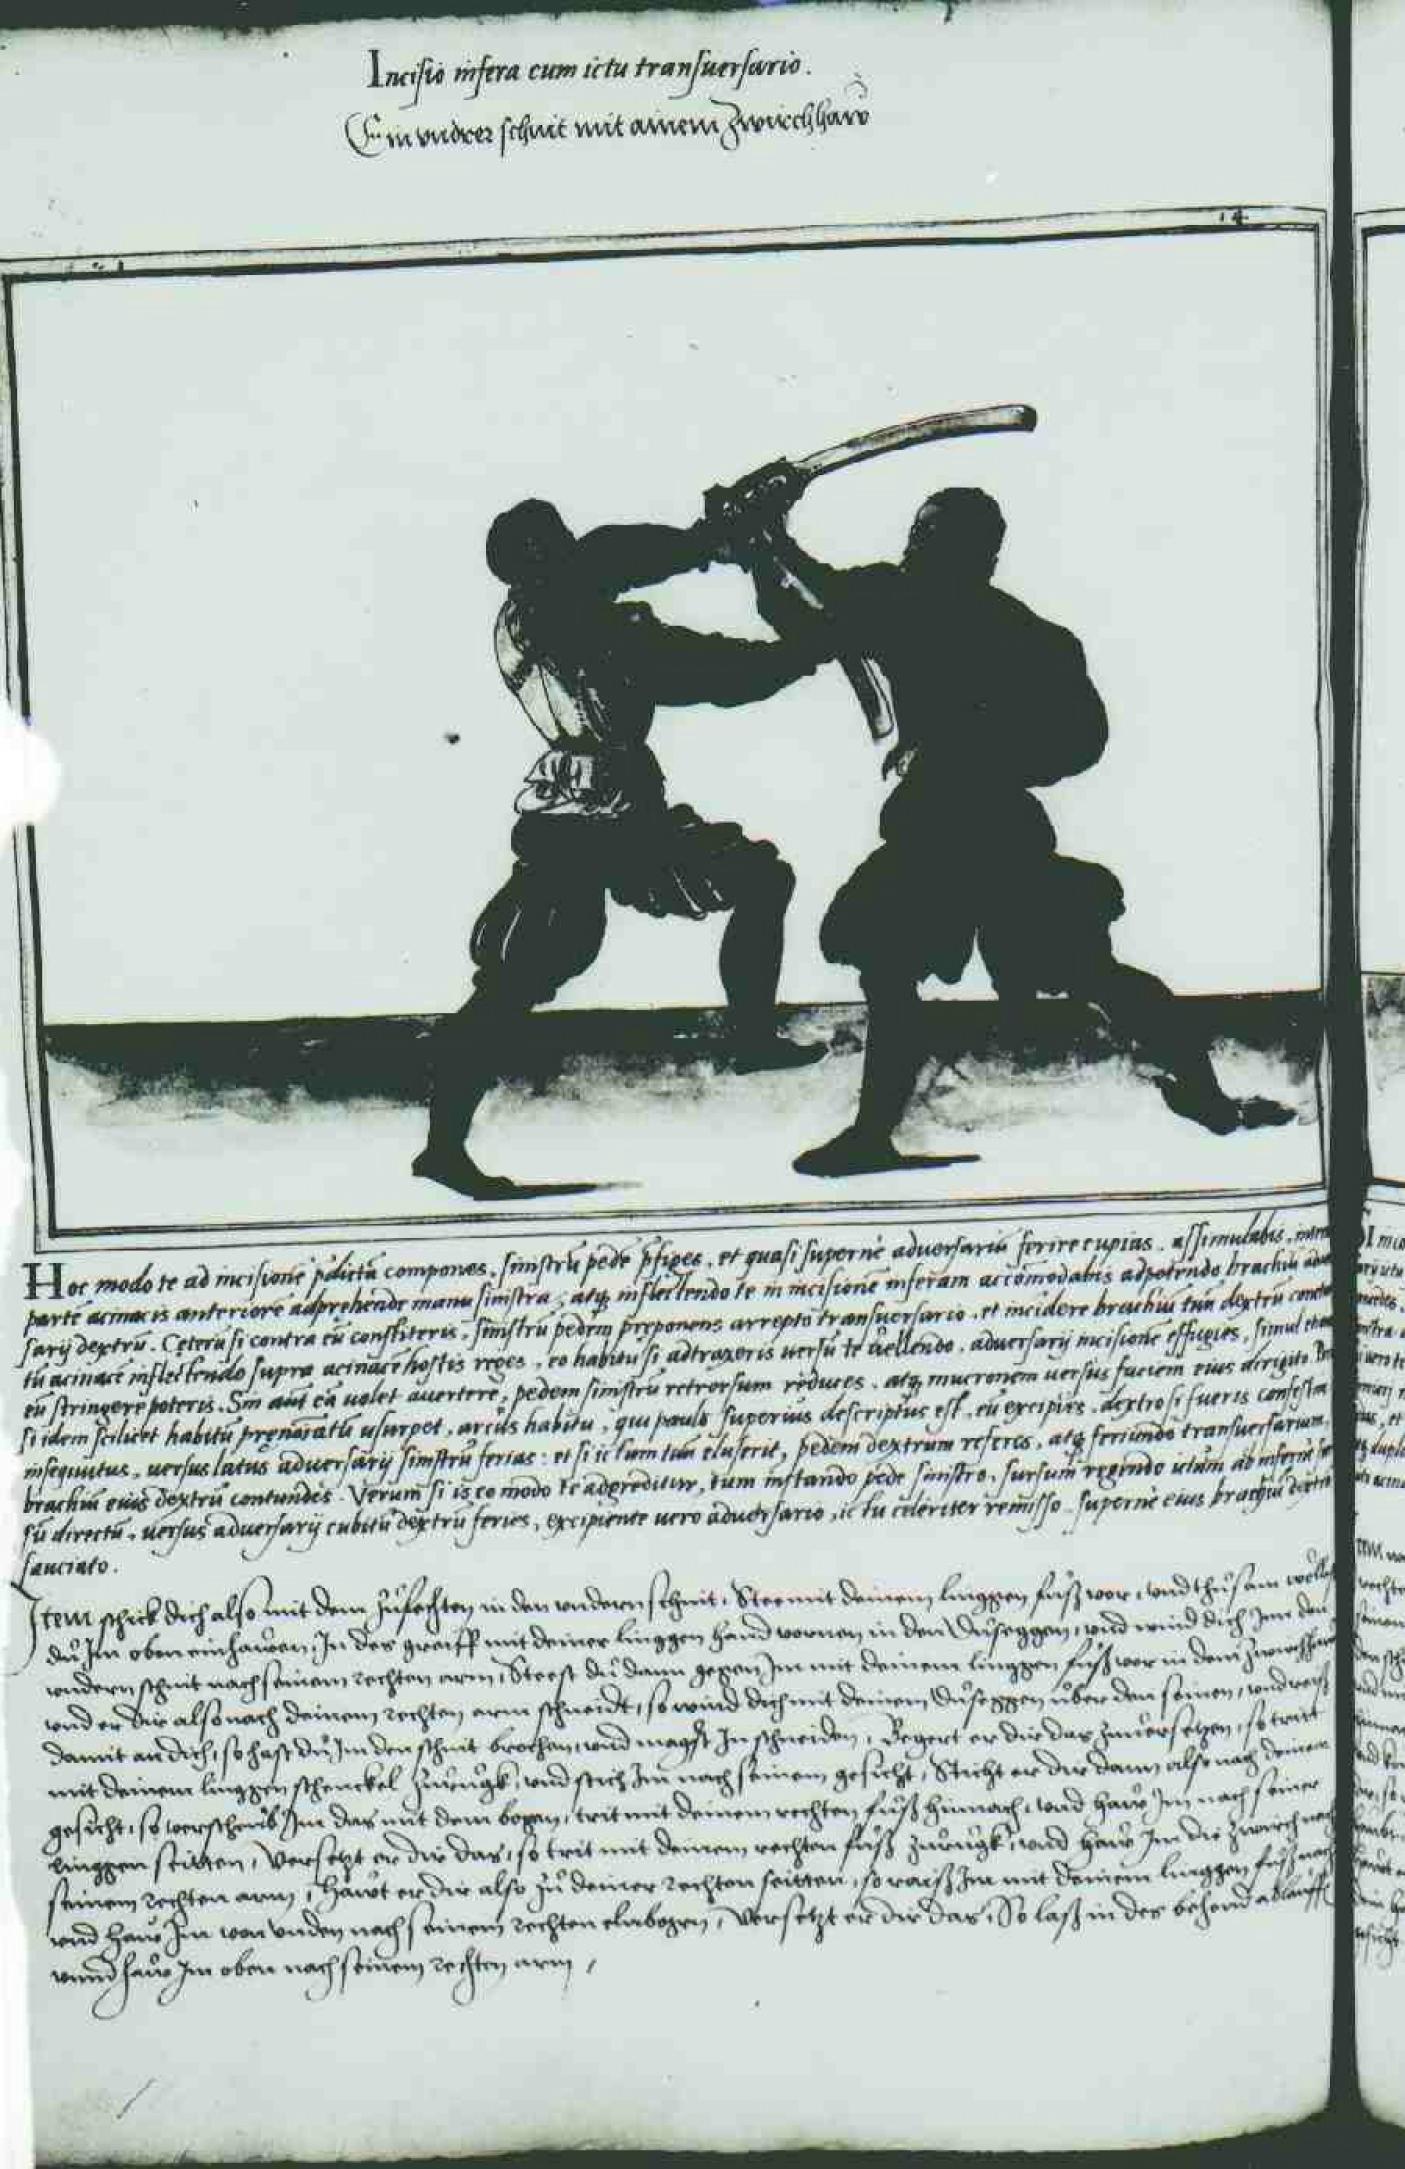 Incisio infera cum ictu transuersario.
Ein vndrer schnit mit ainem Zwirchhaw
14
Hoc modo te ad incisionē p̄dictā compones, sinistrū pede p̄figes, et quasi superne aduersariū ferire cupias, assimulabis,
partē acinacis anteriorē adprehende manu sinistra, atq; inflectendo te in incisionē inferam accōmodabis adpetendo brachiū
sarij dextrū. Ceterū si contra eū constiteris, sinistrū pedem preponens arrepto transuersario, et incidere brachiū tuū dextrū
tū acinacē inflectendo supra acinacē hostis reges, eo habitu si adtraxeris versū te vellendo, aduersarij incisionē effugies, simul
eū stringere poteris. Sin aut ea volet auertere, pedem sinistrū retrorsum reduces, atq; mucronem versus faciem eius dirigito.
si idem scilicet habitū prenarratū vsurpet, arcus habitu, qui paulo superius descriptus est, eū excipies, dextro si fueris
insequutus, versus latus aduersarij sinistrū ferias: et si ictum tuū eluserit, pedem dextrum referes, atq; feriundo transuersarium,
brachiū eius dextrū contundes. Verum si is eo modo te adgreditur, tum instando pede sinistro, sursum regendo ictum ab infernis
sū directū, versus aduersarij cubitū dextrū feries, excipiente vero aduersario, ictu celeriter remisso, superne eius brachiū
sauciato.
Item schick dich also mit dem zůfechten in den vndern schnit, Stee mit deinem linggen fůß vor, vnd thů sam wellest
dů Im oben einhawen, In des greiff mit deiner linggen hand vornen in den Dùseggen, vnd wind dich Inn den
vndern schnit nach seinem rechten arm, Steest dů dann gegen Im mit deinem linggen fůß vor in dem
vnd er dir also nach deinem rechten arm schneidt, so wind dich mit deinem Dùseggen über den seinen, vnd reiß
damit an dich, so hast dů Im den schnit brochen, vnd magst In schneiden, Begert er dir das zůuersetzen, so trit
mit deinem linggen schenckel zůrugk, vnd stich Im nach seinem gesicht, Sticht er dir dann also nach deinem
gesicht, so verscheub Im das mit dem bogen, trit mit deinem rechten fůß hinnach, vnd haw Im nach seiner
linggen seitten, Versetzt er dir das, so trit mit deinem rechten fůß zůrugk, vnd haw Im die zwirch nach
seinem rechten arm, Hawt er dir also zů deiner rechten seitten, so Im mit deinem linggen fůß nach
vnd haw Im von vnden nach seinem rechten elnbogen, Versetzt er dir das, So laß in des behend ablauffen
vnnd haw Im oben nach seinem rechten arm,